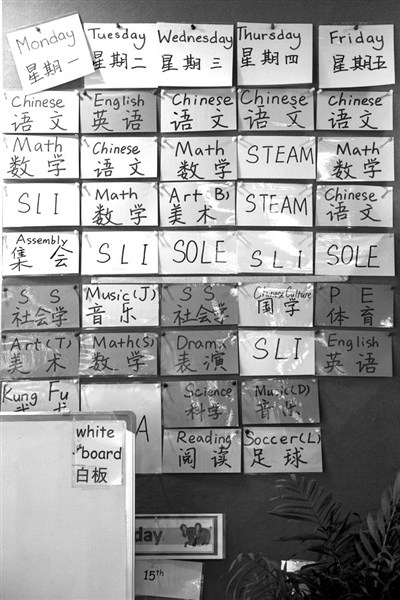 Monday Tuesday Wednesday Thursday Friday
星期一 星期二 星期三 星期四 星期五
Chinese English Chinese Chinese Chinese
语文 英语 语文 语文 语文
Math Chinese Math STEAM Math
数学 语文 数学 数学
SLI Math Art(B) STEAM Chinese
数学 美术 语文
Assembly SLI SOLE SLI SOLE
集会
S S Music(J) S S Chinese Culture P E
社会学 音乐 社会学 国学 体育
Art(T) Math(S) Drama SLI English
美术 数学 表演 英语
Kung Fu Science Music(D)
A 科学 音乐
Reading Soccer(L)
阅读 足球
white
board
白板
day
15th